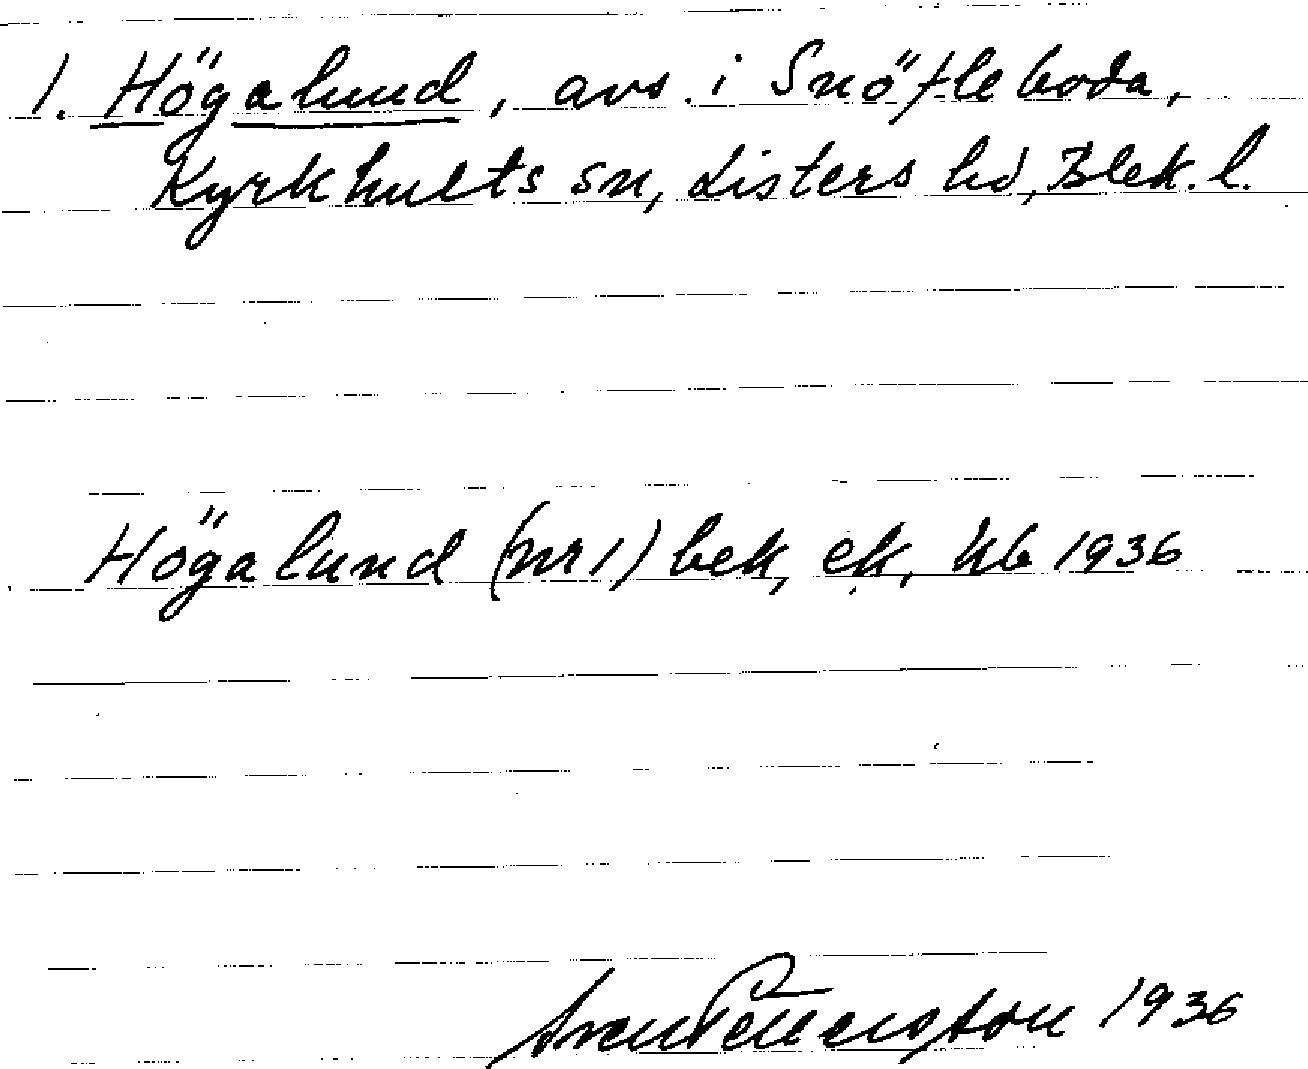 1. Högalund, avs. i Snöfleboda,
Kyrkhults sn, Listers hd, Blek. l.
Högalund (nr 1) bek, ek, kb 1936
1936